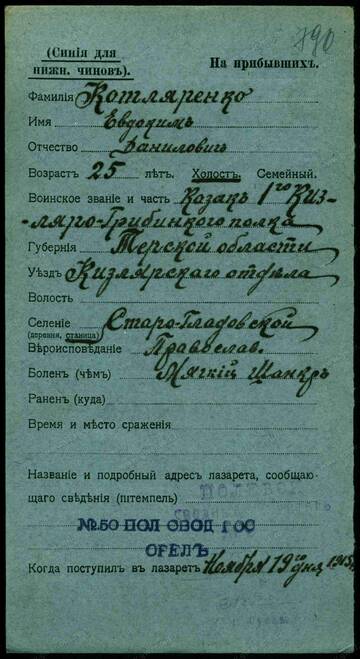 790
(Синія для
нижн. чиновъ).
На прибывшихъ.
Фамилія Котляренко
Имя Евдокимъ
Отчество Даниловичъ
Возрастъ 25 лѣтъ. Холостъ. Семейный.
Воинское званіе и часть Казакъ 1го Киз-
ляро-Гребинского полка
Губернія Терской области
Уѣздъ Кизлярскаго отдѣла
Волость
Селеніе Старо-Гладовской
(деревня, станица)
Вѣроисповѣданіе Православ.
Боленъ (чѣмъ) Мягкій Шанкръ
Раненъ (куда)
Время и мѣсто сраженія
Названіе и подробный адресъ лазарета, сообщаю-
щаго свѣдѣнія (штемпель)
№50 ПОЛ ЗВОД ГОС
ОРЕЛЪ
Когда поступилъ въ лазаретъ Ноября 19го дня 1915